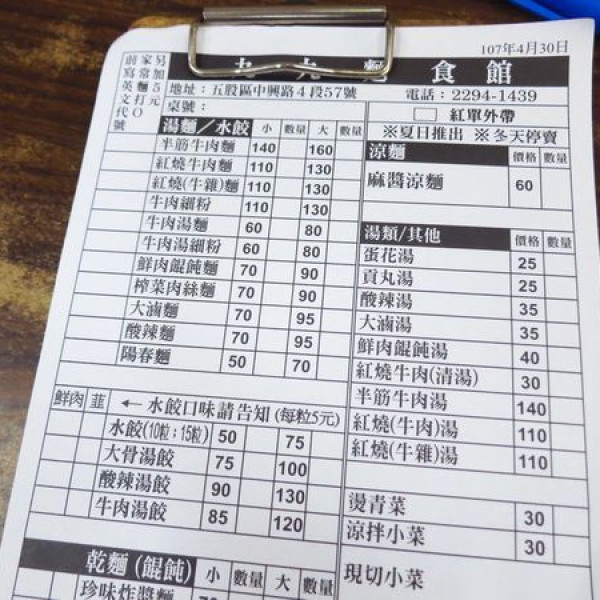 107年4月30日
九九麵食館
前寫英文代號
家常麵打O
另加5元
地址:五股區中興路4段57號
電話:2294-1439
桌號:
紅單外帶
※夏日推出 ※冬天停賣
湯麵/水餃 小 數量 大 數量
半筋牛肉麵 140 160
紅燒牛肉麵 110 130
紅燒(牛雜)麵 110 130
牛肉細粉 110 130
牛肉湯麵 60 80
牛肉湯細粉 60 80
鮮肉餛飩麵 70 90
榨菜肉絲麵 70 90
大滷麵 70 95
酸辣麵 70 95
陽春麵 50 70
涼麵 價格 數量
麻醬涼麵 60
湯類/其他 價格 數量
蛋花湯 25
貢丸湯 25
酸辣湯 35
大滷湯 35
鮮肉餛飩湯 40
紅燒牛肉(清湯) 30
半筋牛肉湯 140
紅燒(牛肉)湯 110
紅燒(牛雜)湯 110
燙青菜 30
涼拌小菜 30
現切小菜
鮮肉 韮 ←水餃口味請告知(每粒5元)
水餃(10粒;15粒) 50 75
大骨湯餃 75 100
酸辣湯餃 90 130
牛肉湯餃 85 120
乾麵(餛飩) 小 數量 大 數量
珍味炸醬麵